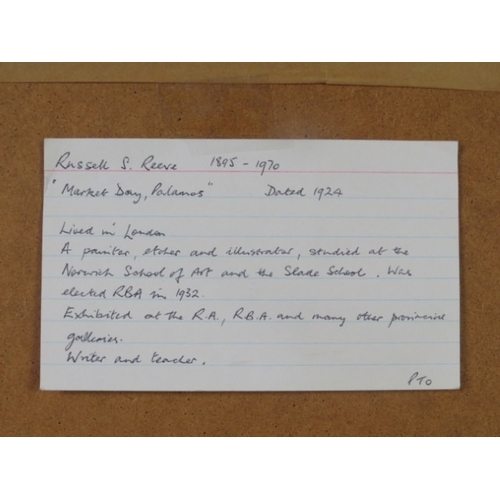 Russell S. Reeve 1895 - 1970
"Market Day, Palamos" Dated 1924
Lived in London
A painter, etcher and illustrator, studied at the
Norwich School of Art and the Slade School. Was
elected RBA in 1932.
Exhibited at the R.A., R.B.A. and many other provincial
galleries.
Writer and teacher.
PTO